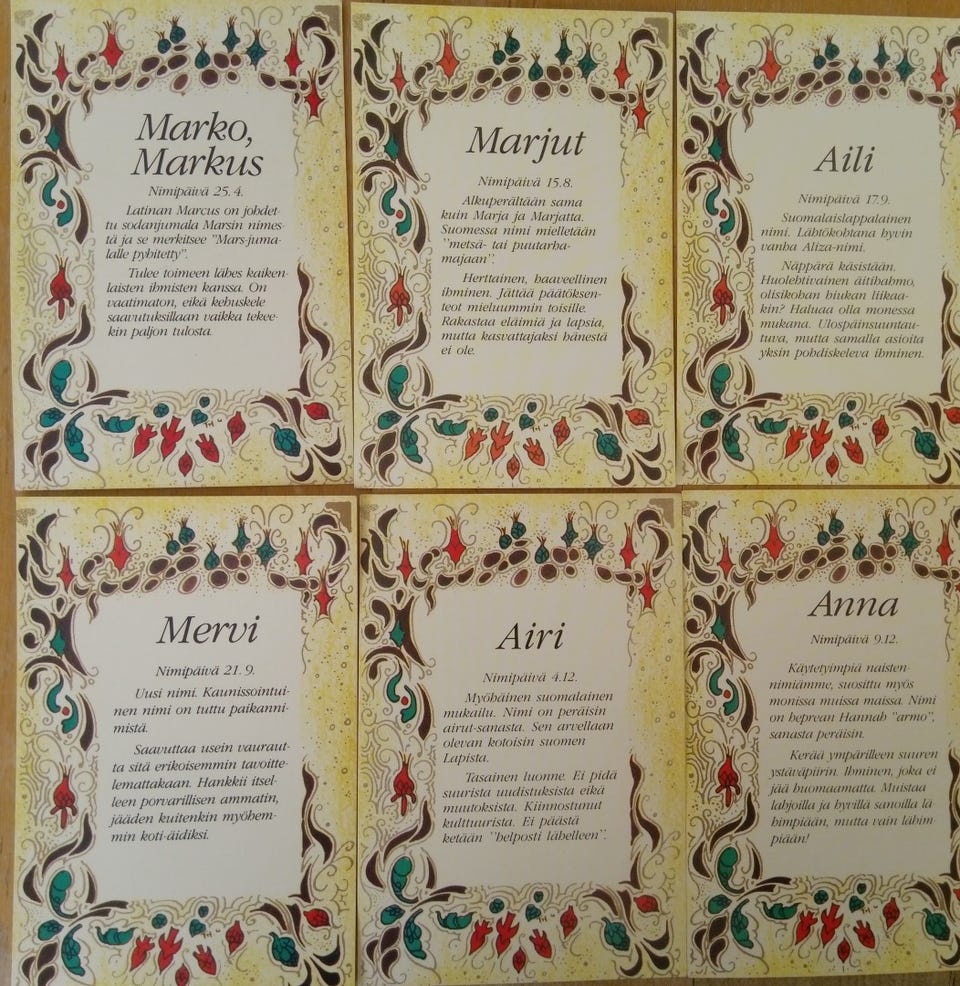 Marko,
Markus
Nimipäivä 25. 4.
Latinan Marcus on johdet-
tu sodanjumala Marsin nimes-
tä ja se merkitsee "Mars-juma-
lalle pyhitetty".
Tulee toimeen lähes kaiken-
laisten ihmisten kanssa. On
vaatimaton, eikä kehuskele
saavutuksillaan vaikka tekee-
kin paljon tulosta.
Marjut
Nimipäivä 15.8.
Alkuperältään sama
kuin Marja ja Marjatta.
Suomessa nimi mielletään
"metsä- tai puutarha-
majaan".
Herttainen, haaveellinen
ihminen. Jättää päätöksen-
teot mieluummin toisille.
Rakastaa eläimiä ja lapsia,
mutta kasvattajaksi hänestä
ei ole.
Aili
Nimipäivä 17.9.
Suomalaislappalainen
nimi. Lähtökohtana hyvin
vanha Aliza-nimi.
Näppärä käsistään.
Huolehtivainen äitihahmo,
olisikohan hiukan liikaa-
kin? Haluaa olla monessa
mukana. Ulospäinsuuntau-
tuva, mutta samalla asioita
yksin pohdiskeleva ihminen.
Mervi
Nimipäivä 21. 9.
Uusi nimi. Kaunissointui-
nen nimi on tuttu paikanni-
mistä.
Saavuttaa usein vauraut-
ta sitä erikoisemmin tavoitte-
lemattakaan. Hankkii itsel-
leen porvarillisen ammatin,
jääden kuitenkin myöhem-
min koti-äidiksi.
Airi
Nimipäivä 4.12.
Myöhäinen suomalainen
mukailu. Nimi on peräisin
airut-sanasta. Sen arvellaan
olevan kotoisin suomen
Lapista.
Tasainen luonne. Ei pidä
suurista uudistuksista eikä
muutoksista. Kiinnostunut
kulttuurista. Ei päästä
ketään "helposti lähelleen".
Anna
Nimipäivä 9.12.
Käytetyimpiä naisten-
nimiämme, suosittu myös
monissa muissa maissa. Nimi
on heprean Hannah "armo",
sanasta peräisin.
Kerää ympärilleen suuren
ystäväpiirin. Ihminen, joka ei
jää huomaamatta. Muistaa
lahjoilla ja hyvillä sanoilla lä
himpiään, mutta vain lähim-
piään!